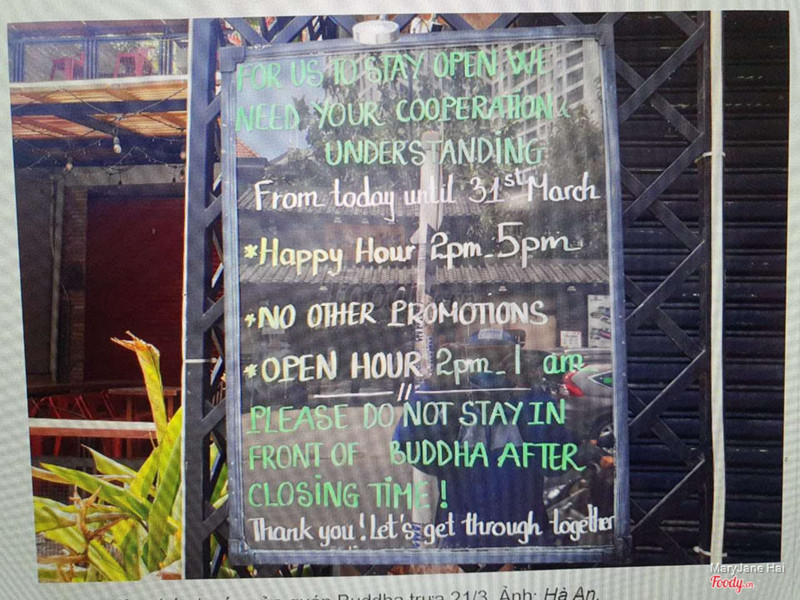 FOR US TO STAY OPEN, WE
NEED YOUR COOPERATION &
UNDERSTANDING
From today until 31st March
*Happy Hour 2pm_5pm
*NO OTHER PROMOTIONS
*OPEN HOUR 2pm_1 am
PLEASE DO NOT STAY IN
FRONT OF BUDDHA AFTER
CLOSING TIME!
Thank you! Let's get through together
quán Buddha trưa 21/3. Ảnh: Hà An.
MaryJane Hai
Foody.vn